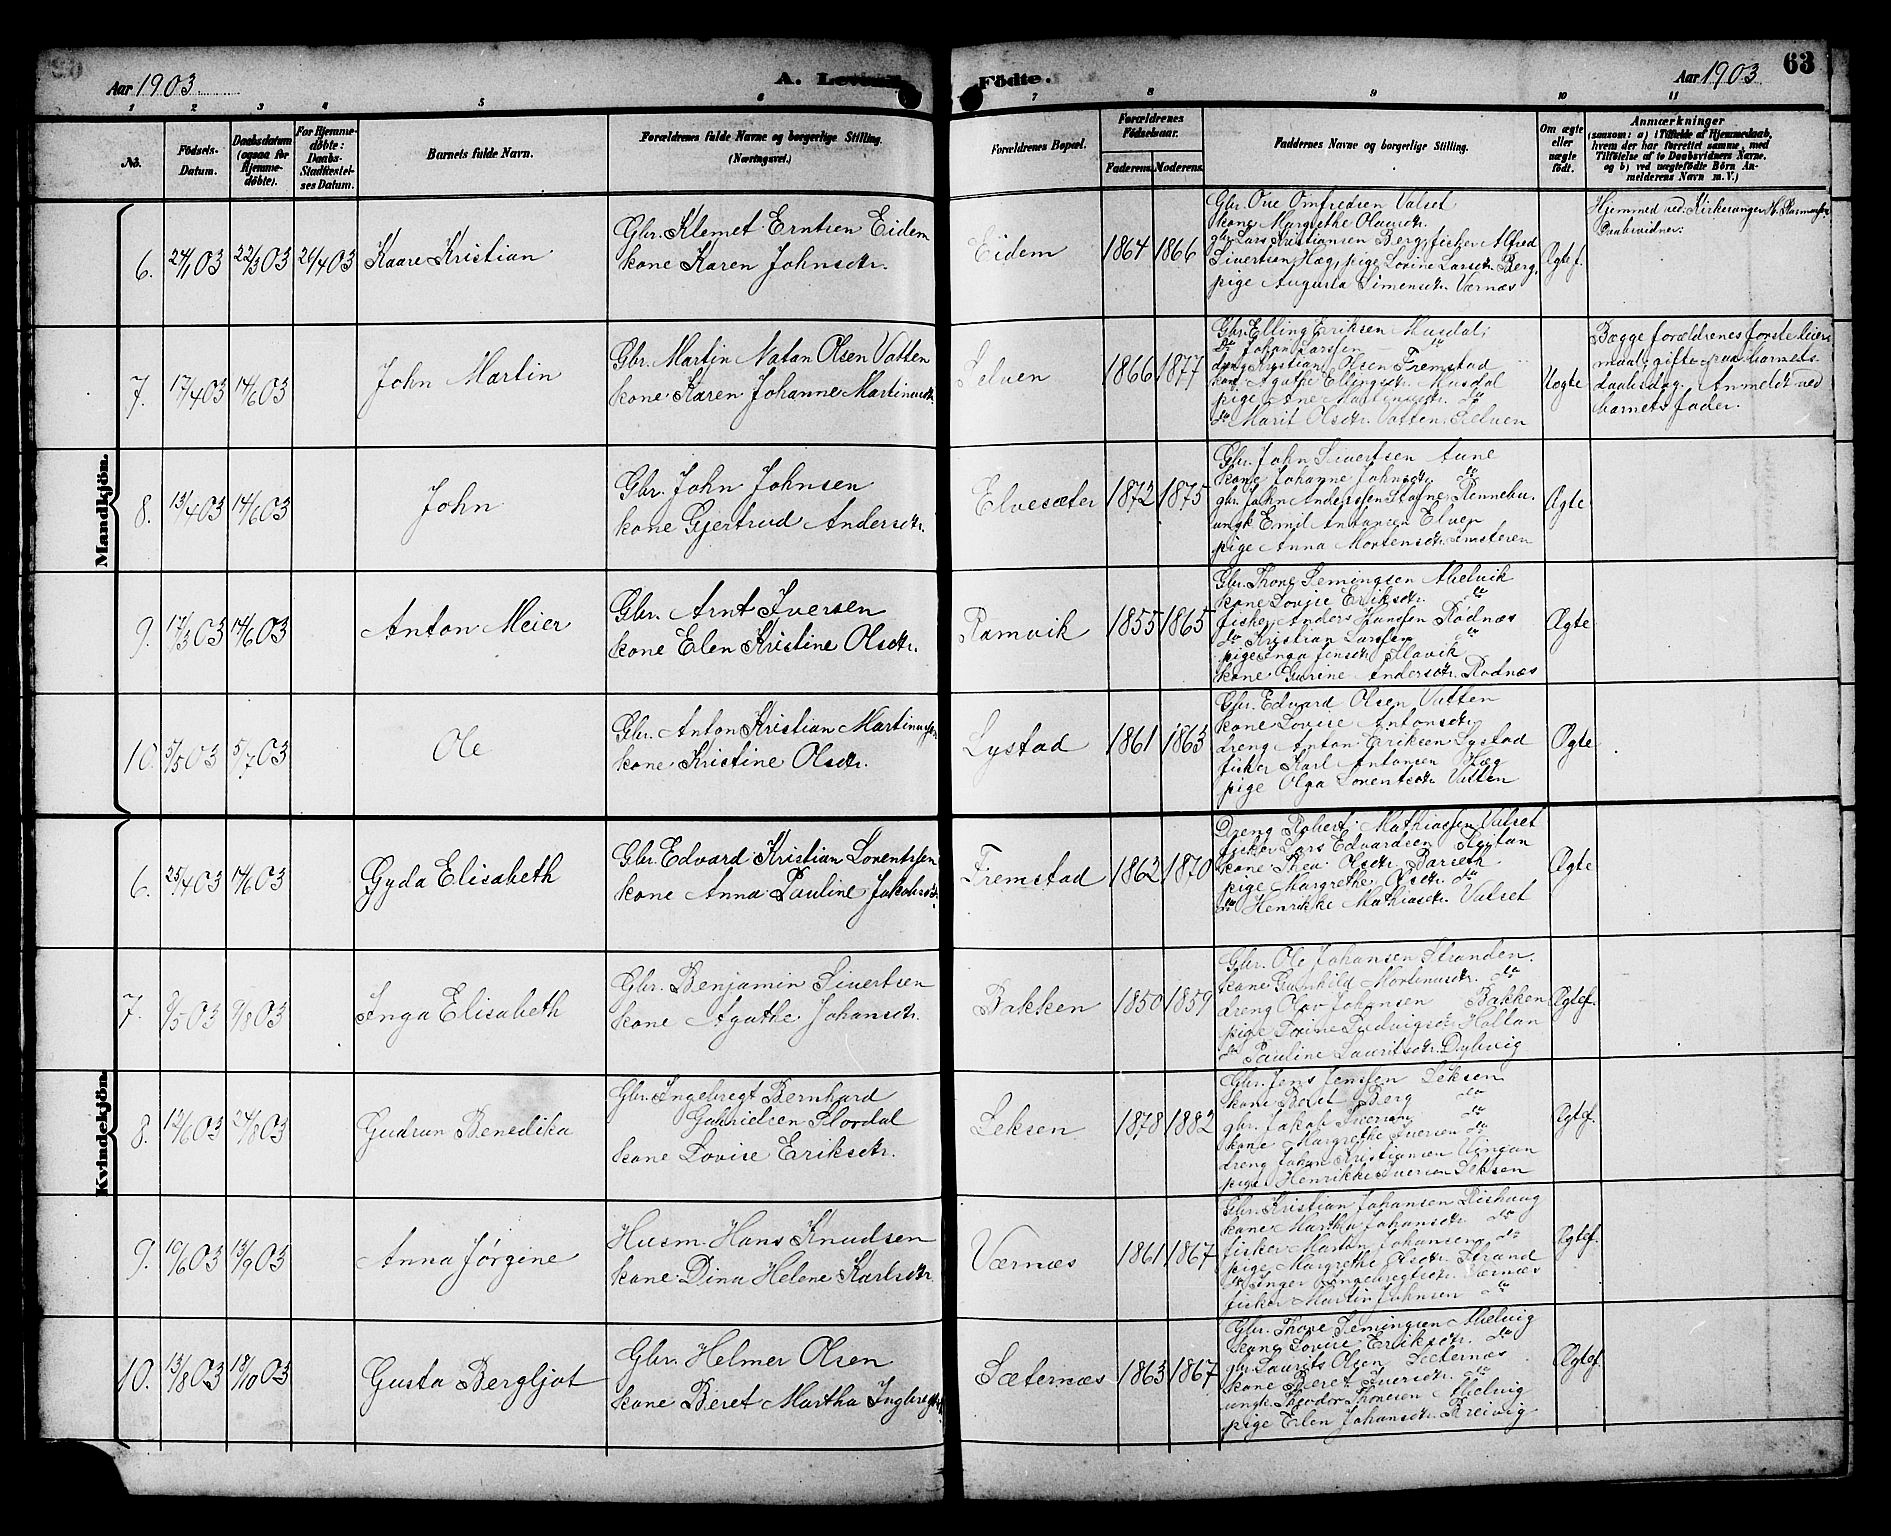 Aar 1903
A. Levende
Födte.
Aar 1903
63
1 2 3 4 5 6 7 8 9 10 11
No.
Födsels-
Datum.
Daabsdatum
(ogsaa for
Hjemme-
døbte).
For Hjemme-
døbte:
Daabs-
Stadfæstel-
ses Datum.
Barnets fulde Navn.
Forældrenes fulde Navne og borgerlige Stilling.
(Næringsvei.)
Forældrenes Bopæl.
Forældrenes
Födselsaar.
Faderens.
Moderens.
Faddernes Navne og borgerlige Stilling.
Om ægte
eller
uægte
født.
Anmærkninger
(saasom: a) i Tilfælde af Hjemmedaab,
hvem der har forrettet samme, med
Tilföielse af to Daabsvidners Navne,
og b) ved uægtefödte Börn An-
melderens Navn m. V.)
Mandkjön.
6. 24/1 03 22/3 03 26/4 03 Kaare Kristian
Gbr. Klemet Erntsen Eidem
kone Karen Johnsdtr.
Eidem 1864 1866
Gbr. Ove Omfredsen Valset
kone Margrethe Olausdtr.
gbr. Lars Kristiansen Berg, fisker Alfred
Sivertsen Hæg, pige Lovine Larsdtr. Berg,
pige Augusta Simensdtr. Værnæs
Ægtef.
Hjemmed. ved. Kirkesanger
Daabsvidner:
7. 17/4 03 14/6 03 John Martin
Gbr. Martin Natan Olsen Vatten
kone Karen Johanne Martinusdtr.
Selven 1866 1877
Gbr. Elling Eriksen Musdal;
Do Johan Larssen
dreng Kristian Olsen Fremstad
kone Agathe Ellingsdtr. Musdal
pige Ane Martinusdtr. do
do Marit Olsdtr. Vatten, Selven
Uægte
Begge forældrenes første leier-
maal, gifte paa barnets
daabsdag. Anmeldt ved
barnets fader.
8. 13/4 03 14/6 03 John
Gbr. John Johnsen
kone Gjertrud Andersdtr.
Elvesæter 1872 1875
Gbr. John Sivertsen Aune
kone Johanne Johnsdtr. do
gbr. John Anderssen Stavne, Rennebu.
ungk. Emil Antonsen Elven
pige Anna Mortensdtr. Imsteren
Ægte
9. 17/3 03 14/6 03 Anton Meier
Gbr. Arnt Iversen
kone Elen Kristine Olsdtr.
Ramvik 1855 1865
Gbr. Thone Semingsen Melvik
kone Lovise Eriksdtr. do
fisker Anders Hanssen Rødnæs
do Kristian Larssen do
pige Inga Jensdtr.
kone Gurine Andersdtr. Rødnæs
Ægte
10. 3/5 03 5/7 03 Ole
Gbr. Anton Kristian Martinussen
kone Kristine Olsdtr.
Lystad 1861 1863
Gbr. Edvard Olsen Vatten
kone Lovise Antonsdtr.
dreng Anton Eriksen Lystad
fisker Karl Antonsen Hæg
pige Olga Lorentsdtr. Vatten
Ægte
Kvindekjön.
6. 25/4 03 14/6 03 Gyda Elisabeth
Gbr. Edvard Kristian Lorentssen
kone Anna Pauline Jakobsdtr.
Fremstad 1862 1870
Dreng Robert Mathiassen Valset
fisker Lars Edvardsen Reitan
kone Thea Olsdtr. Barseth
pige Margrethe Olsdtr. do
do Henrikke Mathiasdtr. Valset
Ægte
7. 8/5 03 9/8 03 Inga Elisabeth
Gbr. Benjamin Sivertsen
kone Agathe Johansdtr.
Bakken 1850 1859
Gbr. Ole Johansen Stranden.
kone Gunhild Mortinusdtr. do
dreng Olav Johansen Bakken
pige Dorine Ludvigsdtr. Holtan
do Pauline Lauritsdtr. Dybvig
Ægtef.
8. 12/6 03 24/8 03 Gudrun Benedika
Gbr. Ingebregt Bernhard
Gabrielsen Slordal
kone Lovise Eriksdtr.
Leksen 1878 1882
Gbr. Jens Jenssen Leksen
kone Beret Berg do
gbr. Jakob Iversen do
kone Margrethe Iversen do
dreng Johan Kristiansen Vingan
pige Henrikke Iversen Leksen
Ægtef.
9. 10/6 03 13/9 03 Anna Jørgine
Husm. Hans Knudsen
kone Dina Helene Karlsdtr.
Værnæs 1861 1867
Gbr. Kristian Johansen Rishaug
kone Martha Johansdtr. do
fisker Martin Johansen do
pige Margrethe Olsdtr. Strand
do Inger Ingebregtsdtr. Værnæs
fisker Martin Johnsen do
Ægtef.
10. 13/8 03 18/10 03 Gusta Bergljot
Gbr. Helmer Olsen
kone Beret Martha Ingbregtsdtr.
Sæternæs 1863 1867
Gbr. Thone Semingsen Melvig
kone Lovise Eriksdtr. do
gbr. Laurits Olsen Sæternæs
kone Beret Iversdtr. do
ungk. Theodor Thonesen Melvig
pige Elen Johansdtr. Breivig
Ægtef.